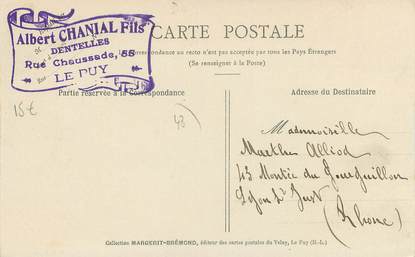 CARTE POSTALE
Albert CHANIAL Fils
DENTELLES
Rue Chaussade, 55
LE PUY
La Correspondance au recto n'est pas acceptée par tous les Pays Étrangers
(Se renseigner à la Poste)
Partie réservée à la Correspondance
Adresse du Destinataire
15€
43
Mademoiselle
Marthe Alliod
43 Montée du Gourguillon
Lyon St Just
(Rhône)
Collection MARGERIT-BRÉMOND, éditeur des cartes postales du Velay, Le Puy (H.-L.)